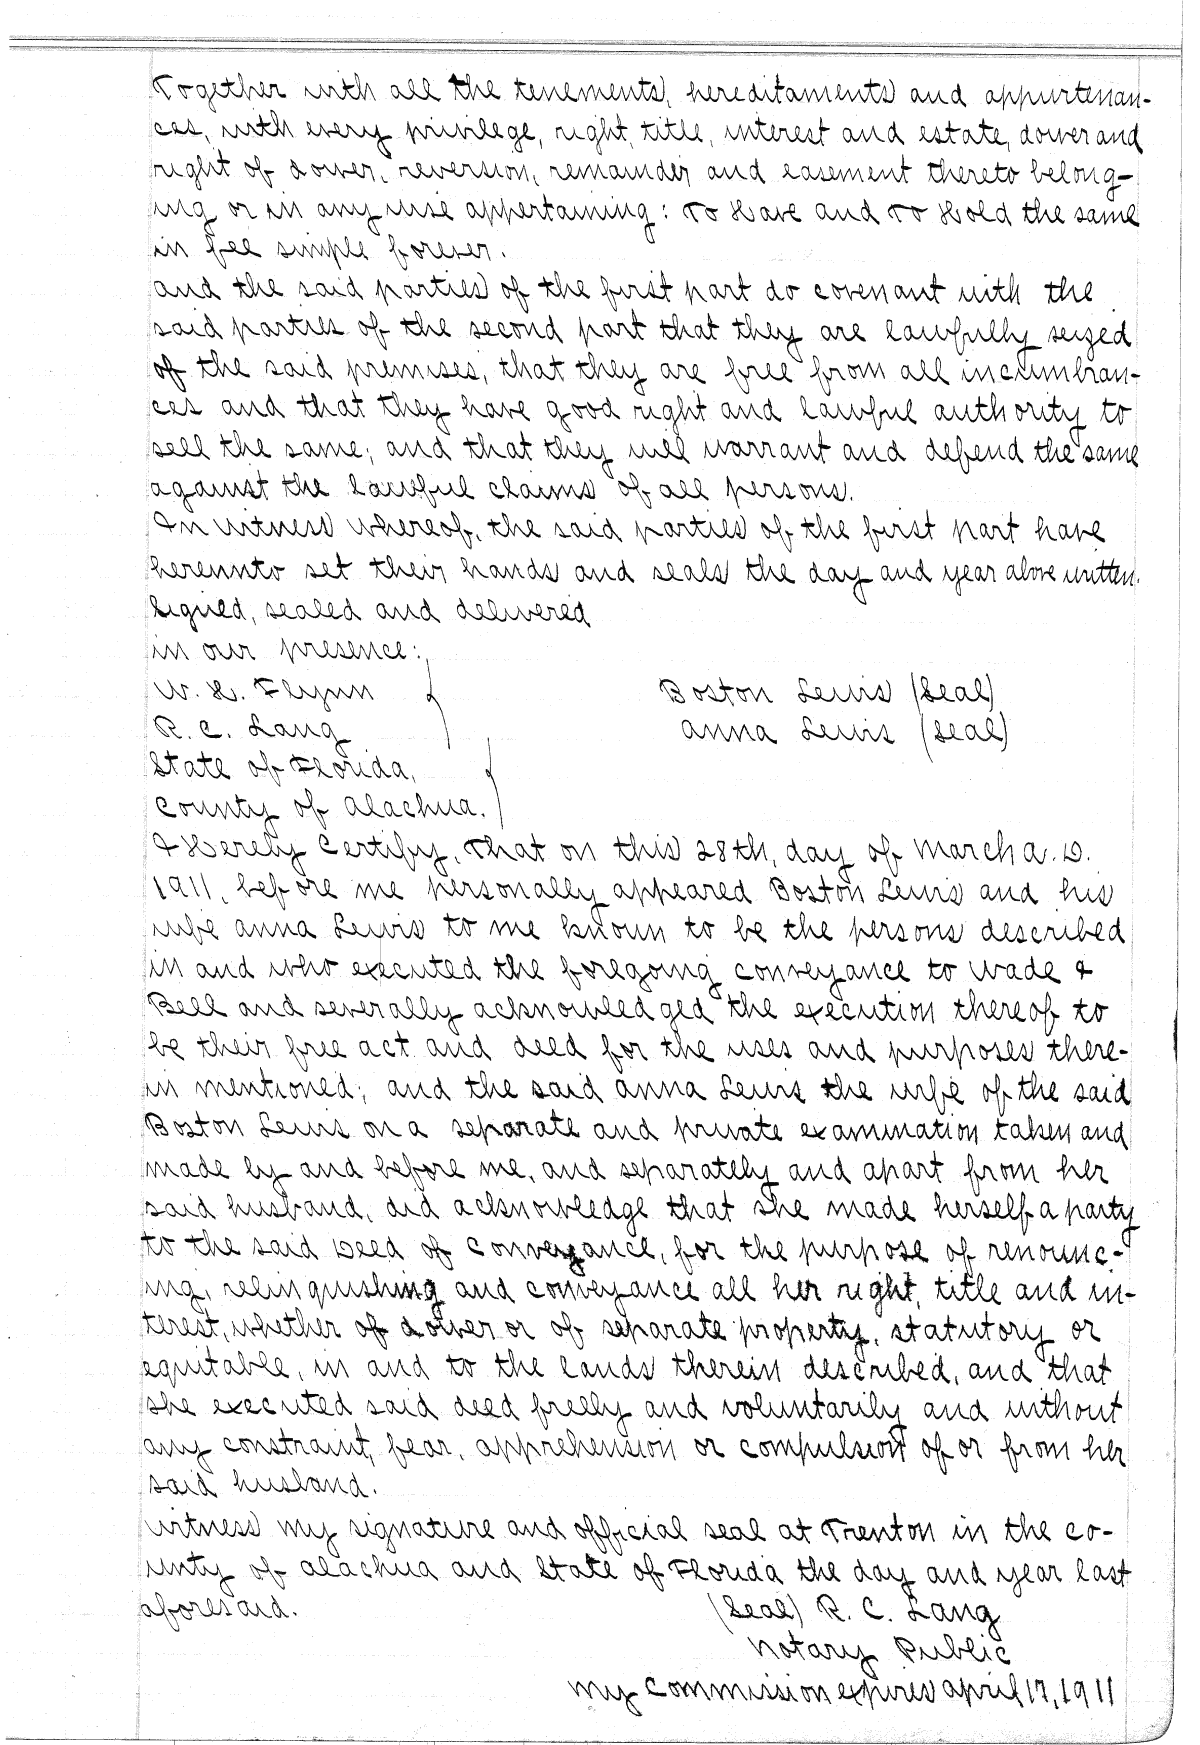 Together with all the tenements, hereditaments and appurtenan-
ces, with every privilege, right, title, interest and estate, dower and
right of dower, reversion, remainder and easement thereto belong-
ing or in any wise appertaining: To Have and To Hold the same
in fee simple forever.
And the said parties of the first part do covenant with the
said parties of the second part that they are lawfully seized
of the said premises, that they are free from all incumbran-
ces and that they have good right and lawful authority to
sell the same; and that they will warrant and defend the same
against the lawful claims of all persons.
In witness whereof, the said parties of the first part have
hereunto set their hands and seals the day and year above written.
Signed, sealed and delivered
in our presence:
W. H. Flynn Boston Lewis (Seal)
R. C. Lang Anna Lewis (Seal)
State of Florida,
County of Alachua.
I Hereby Certify, That on this 28th, day of March A. D.
1911, before me personally appeared Boston Lewis and his
wife Anna Lewis to me known to be the persons described
in and who executed the foregoing conveyance to Wade &
Bell and severally acknowledged the execution thereof to
be their free act and deed for the uses and purposes there-
in mentioned; and the said Anna Lewis the wife of the said
Boston Lewis on a separate and private examination taken and
made by and before me, and separately and apart from her
said husband, did acknowledge that she made herself a party
to the said Deed of Conveyance, for the purpose of renounc-
ing, relinquishing and conveyance all her right, title and in-
terest, whether of dower or of separate property, statutory or
equitable, in and to the lands therein described, and that
she executed said deed freely and voluntarily and without
any constraint, fear, apprehension or compulsion of or from her
said husband.
Witness my signature and official seal at Trenton in the co-
unty of Alachua and State of Florida the day and year last
aforesaid. (Seal) R. C. Lang
Notary Public
My commission expires April 17, 1911